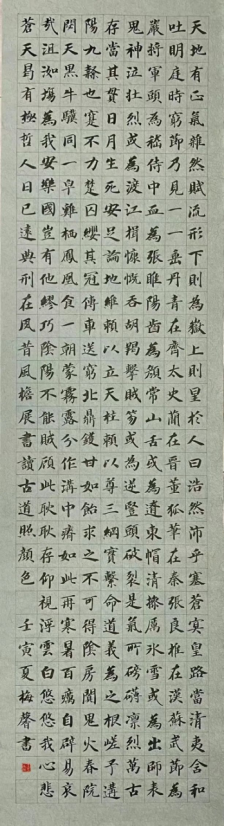 天地有正氣雜然賦流形下則為嶽上則星於人曰浩然沛乎塞蒼冥皇路當清夷含和
吐明庭時窮節乃見一一垂丹青在齊太史簡在晉董狐筆在秦張良椎在漢蘇武節為
嚴將軍頭為嵇侍中血為張睢陽齒為顏常山舌或為遼東帽清操厲冰雪或為出師表
鬼神泣壯烈或為渡江楫慷慨吞胡羯或為擊賊笏逆豎頭破裂是氣所磅礴凜烈萬古
存當其貫日月生死安足論地維賴以立天柱賴以尊三綱實繫命道義為之根嗟予遘
陽九隸也實不力楚囚纓其冠傳車送窮北鼎鑊甘如飴求之不可得陰房闐鬼火春院
閟天黑牛驥同一皁雞棲鳳凰食一朝蒙霧露分作溝中瘠如此再寒暑百沴自辟易哀
哉沮洳場為我安樂國豈有他繆巧陰陽不能賊顧此耿耿存仰視浮雲白悠悠我心悲
蒼天曷有極哲人日已遠典刑在夙昔風檐展書讀古道照顏色 壬寅夏梅馨書